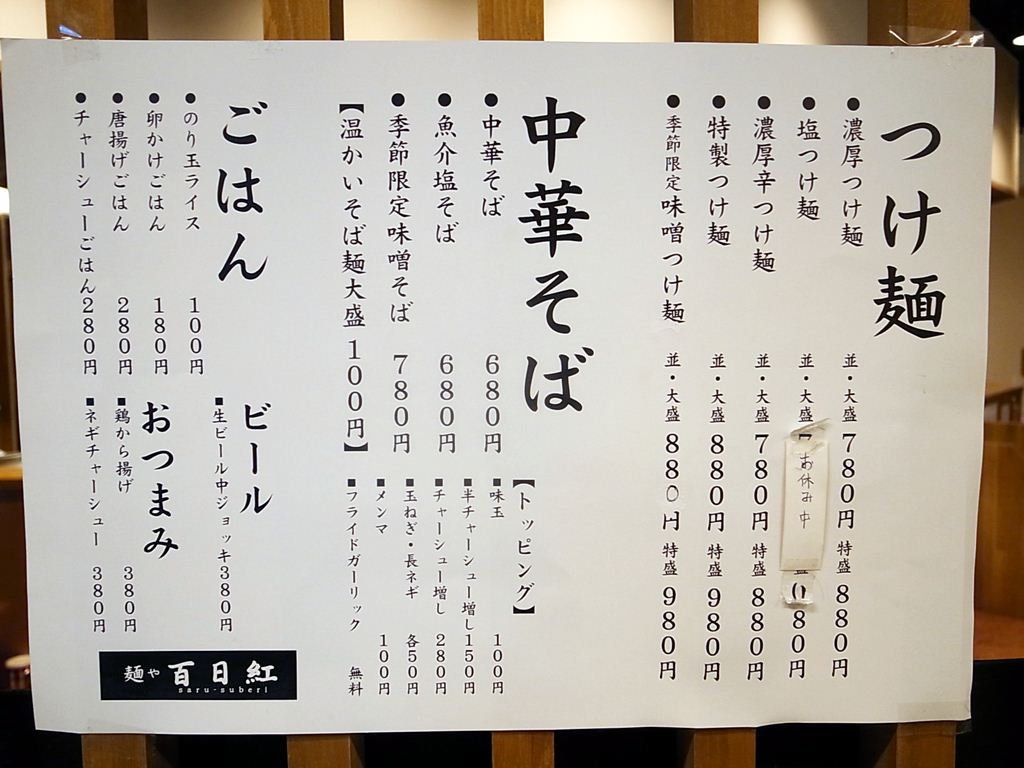 つけ麺
●濃厚つけ麺 並・大盛 780円 特盛 880円
●塩つけ麺 並・大盛 お休み中 080円
●濃厚辛つけ麺 並・大盛 780円 特盛 880円
●特製つけ麺 並・大盛 880円 特盛 980円
●季節限定味噌つけ麺 並・大盛 880円 特盛 980円
中華そば
●中華そば 680円
●魚介塩そば 680円
●季節限定味噌そば 780円
【温かいそば麺大盛 100円】
【トッピング】
■味玉 100円
■半チャーシュー増し 150円
■チャーシュー増し 280円
■玉ねぎ・長ネギ 各50円
■メンマ 100円
■フライドガーリック 無料
ごはん
●のり玉ライス 100円
●卵かけごはん 180円
●唐揚げごはん 280円
●チャーシューごはん 280円
ビール
■生ビール中ジョッキ 380円
おつまみ
■鶏から揚げ 380円
■ネギチャーシュー 380円
麺や 百日紅
saru-suberi